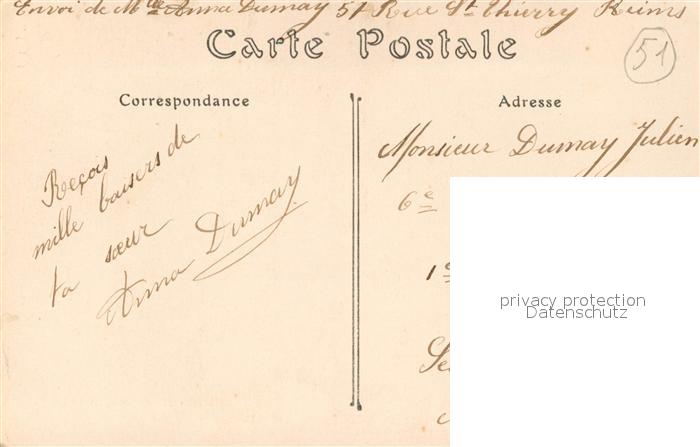 Envoi de Mlle Anna Dumay 51 Rue St Thierry Reims
Carte Postale
51
Correspondance
Reçois
mille baisers de
ta sœur
Anna Dumay
Adresse
Monsieur Dumay Julien
6e
1e
privacy protection
Datenschutz